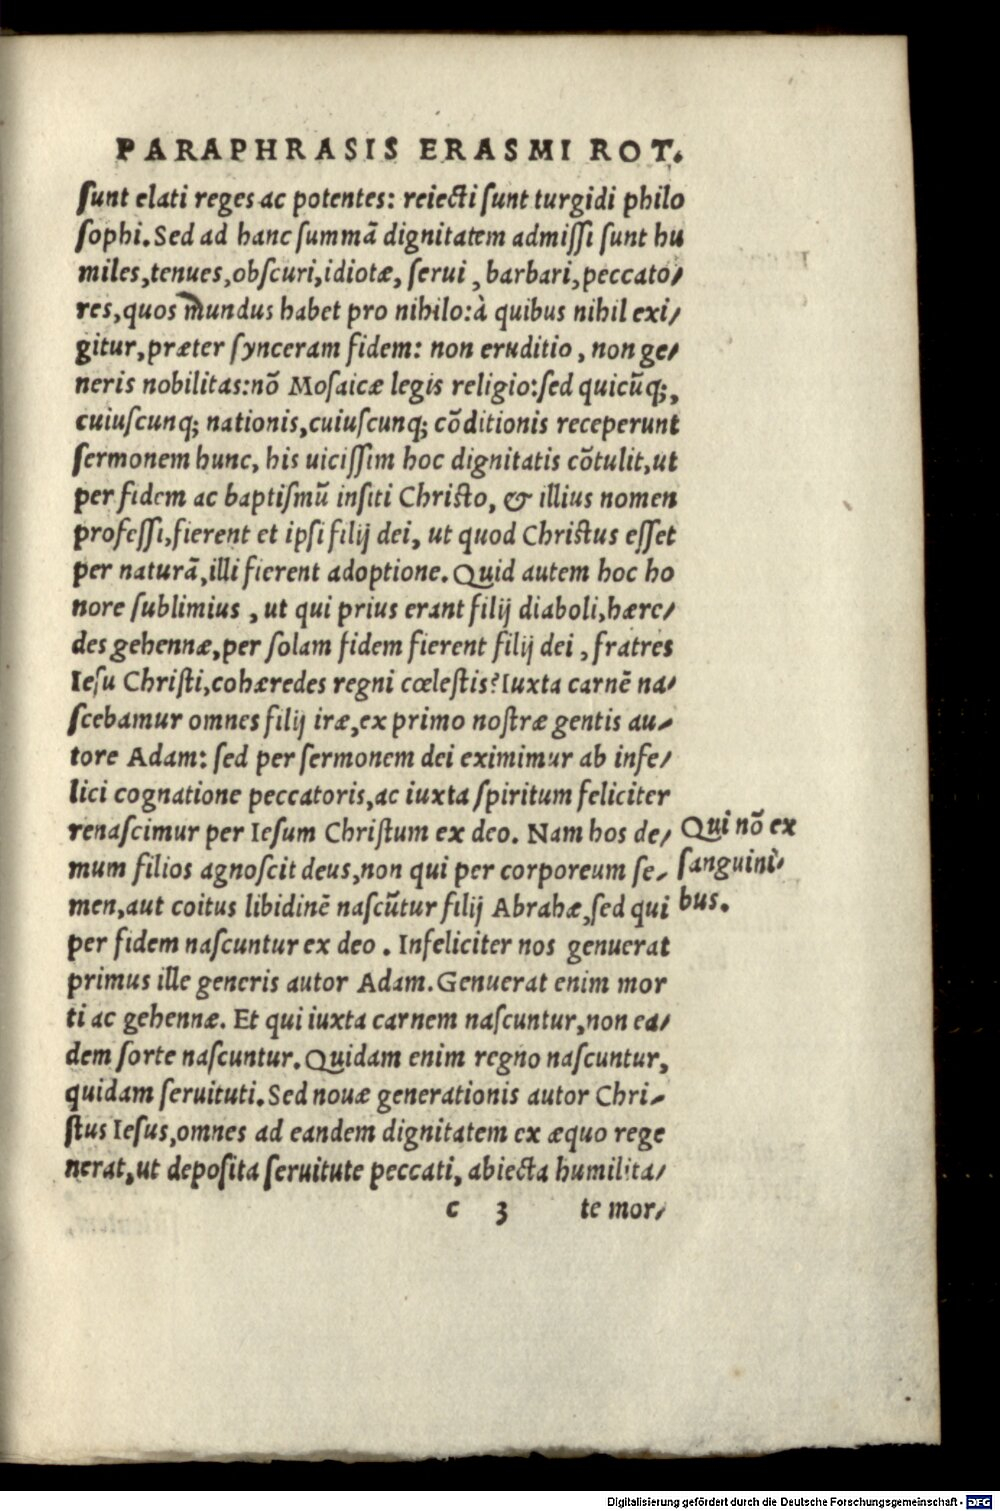 PARAPHRASIS ERASMI ROT.
ſunt elati reges ac potentes: reiecti ſunt turgidi philo
ſophi. Sed ad hanc ſummã dignitatem admiſſi ſunt hu
miles, tenues, obſcuri, idiotæ, ſerui, barbari, peccato/
res, quos mundus habet pro nihilo: à quibus nihil exi/
gitur, præter ſynceram fidem: non eruditio, non ge/
neris nobilitas: nõ Moſaicæ legis religio: ſed quicũq;,
cuiuſcunq; nationis, cuiuſcunq; cõditionis receperunt
ſermonem hunc, his uiciſſim hoc dignitatis cõtulit, ut
per fidem ac baptiſmũ inſiti Chriſto, & illius nomen
profeſſi, fierent et ipſi filij dei, ut quod Chriſtus eſſet
per naturã, illi fierent adoptione. Quid autem hoc ho
nore ſublimius, ut qui prius erant filij diaboli, hære/
des gehennæ, per ſolam fidem fierent filij dei, fratres
Ieſu Chriſti, cohæredes regni cœleſtis? Iuxta carnẽ na/
ſcebamur omnes filij iræ, ex primo noſtræ gentis au/
tore Adam: ſed per ſermonem dei eximimur ab infe/
lici cognatione peccatoris, ac iuxta ſpiritum feliciter
renaſcimur per Ieſum Chriſtum ex deo. Nam hos de/
mum filios agnoſcit deus, non qui per corporeum ſe/
men, aut coitus libidinẽ naſcũtur filij Abrahæ, ſed qui
per fidem naſcuntur ex deo. Infeliciter nos genuerat
primus ille generis autor Adam. Genuerat enim mor
ti ac gehennæ. Et qui iuxta carnem naſcuntur, non ea/
dem ſorte naſcuntur. Quidam enim regno naſcuntur,
quidam ſeruituti. Sed nouæ generationis autor Chri/
ſtus Ieſus, omnes ad eandem dignitatem ex æquo rege
nerat, ut depoſita ſeruitute peccati, abiecta humilita/
c 3 te mor/
Qui nõ ex
ſanguini/
bus.
Digitalisierung gefördert durch die Deutsche Forschungsgemeinschaft - DFG